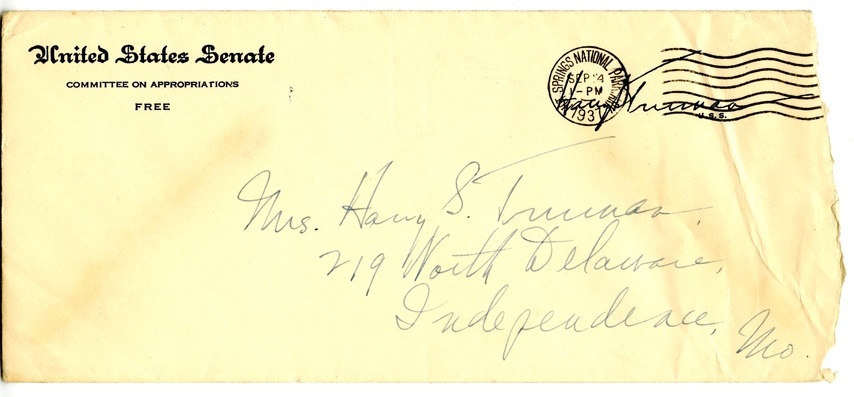 United States Senate
COMMITTEE ON APPROPRIATIONS
FREE
SPRINGS NATIONAL PARK
SEP
1-PM
1937
Harry S Truman
U.S.S.
Mrs. Harry S. Truman,
219 North Delaware,
Independence,
Mo.